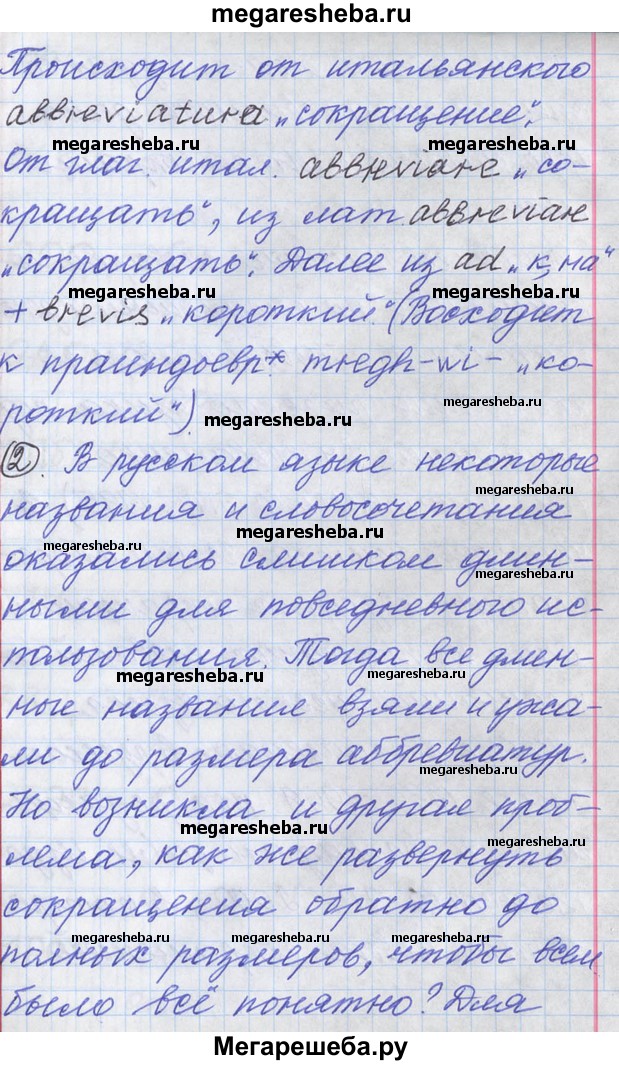 megaresheba.ru
Происходит от итальянского
abbreviatura „сокращение“.
megaresheba.ru megaresheba.ru
От глаг. итал. abbreviare „со-
кращать“, из лат. abbreviare
megaresheba.ru megaresheba.ru
„сокращать“. Далее из ad „к, на“
megaresheba.ru megaresheba.ru
+ brevis „короткий“ (Восходит
к праиндоевр.* mregh-wi- „ко-
megaresheba.ru
роткий“).
megaresheba.ru
②. В русском языке некоторые
megaresheba.ru
названия и словосочетания
megaresheba.ru megaresheba.ru
оказались слишком длин-
megaresheba.ru
ными для повседневного ис-
пользования. Тогда все длин-
megaresheba.ru megaresheba.ru
ные названия взяли и ужа-
ли до размера аббревиатур.
megaresheba.ru
Но возникла и другая проб-
megaresheba.ru megaresheba.ru
лема, как же развернуть
сокращения обратно до
megaresheba.ru megaresheba.ru megaresheba.ru
полных размеров, чтобы всем
было всё понятно? Для
Мегарешеба.ру